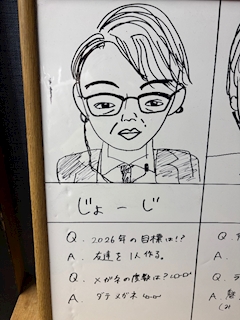 じょーじ
Q. 2026年の目標は!?
A. 友達を1人作る。
Q. メガネの度数は?
A. ダテメガネ
A.
A.